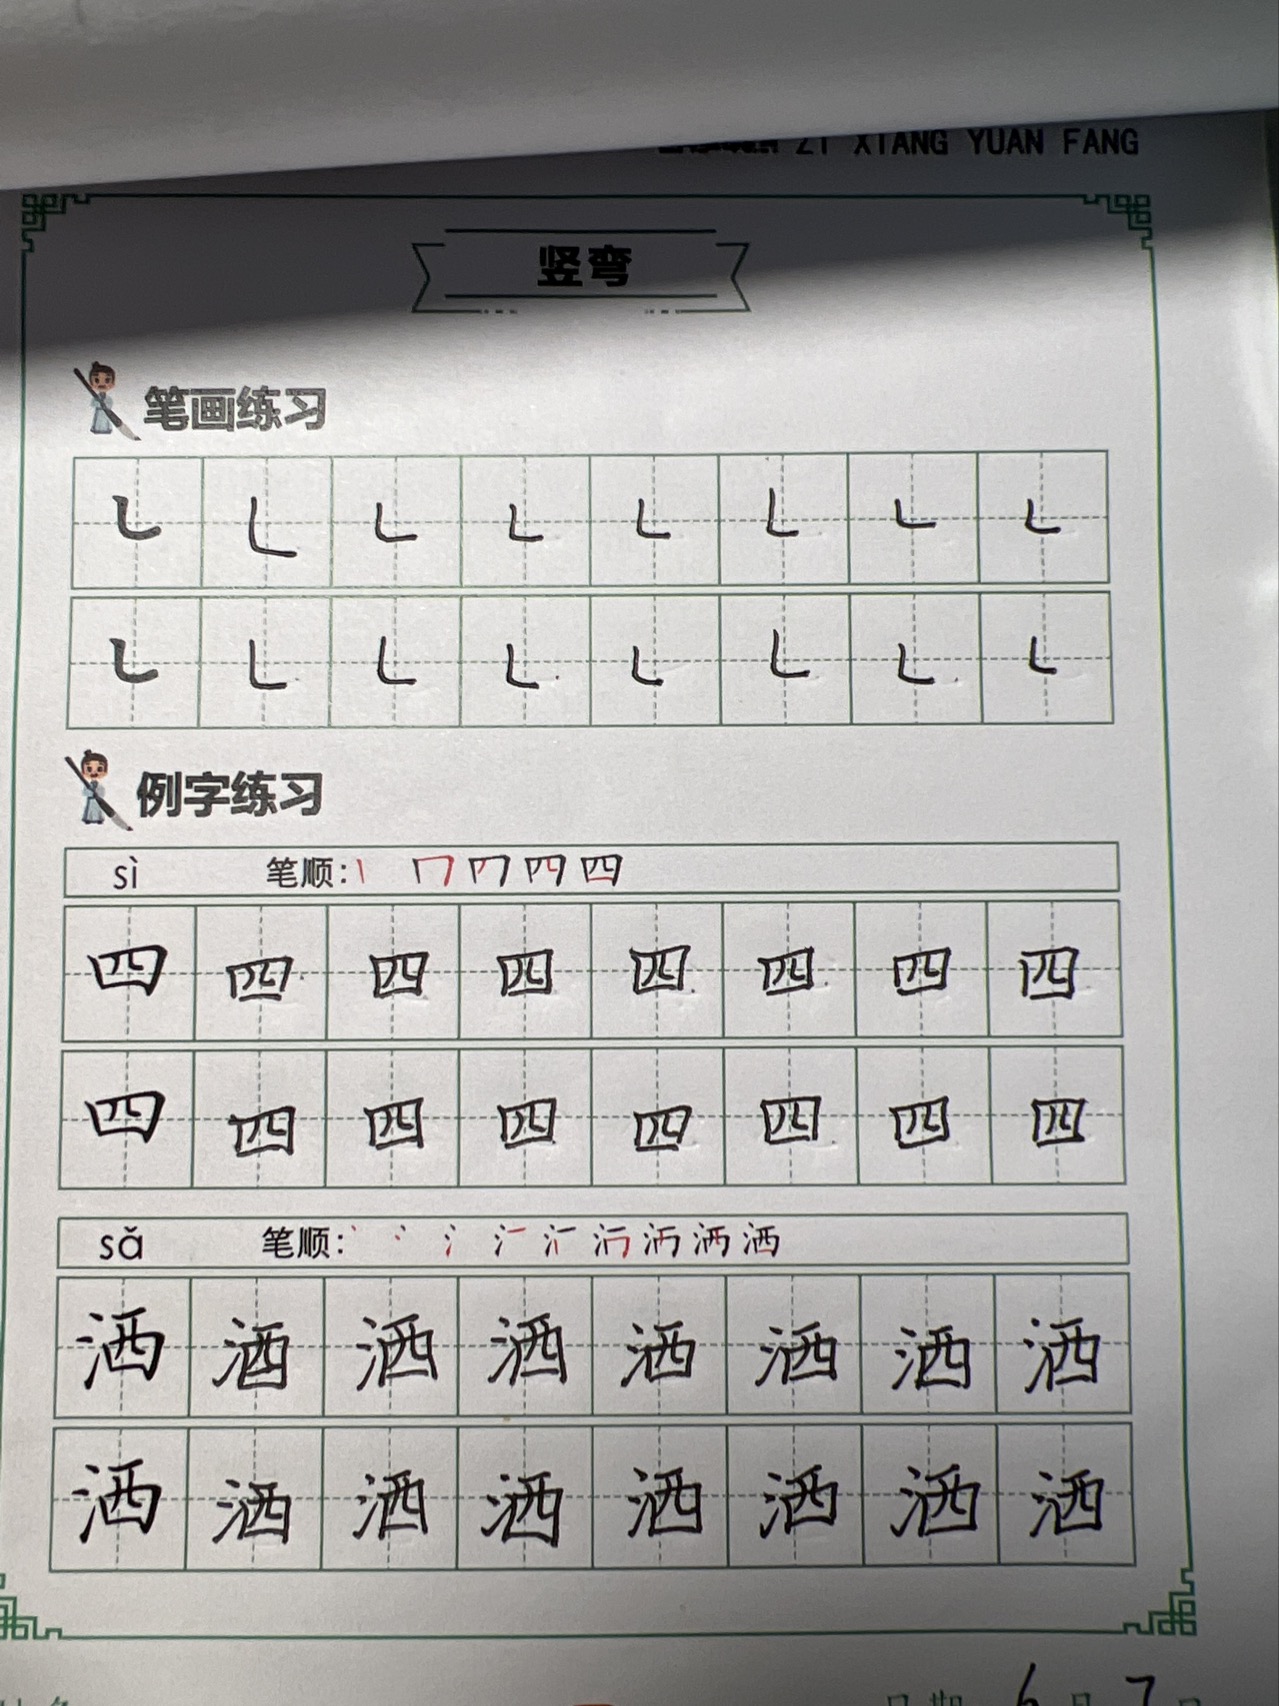 ZI XIANG YUAN FANG
竖弯
笔画练习
㇄ ㇄ ㇄ ㇄ ㇄ ㇄ ㇄ ㇄
㇄ ㇄ ㇄ ㇄ ㇄ ㇄ ㇄ ㇄
例字练习
sì 笔顺:
四 四 四 四 四 四 四 四
四 四 四 四 四 四 四 四
sǎ 笔顺:
洒 洒 洒 洒 洒 洒 洒 洒
洒 洒 洒 洒 洒 洒 洒 洒
日期 6 月 7